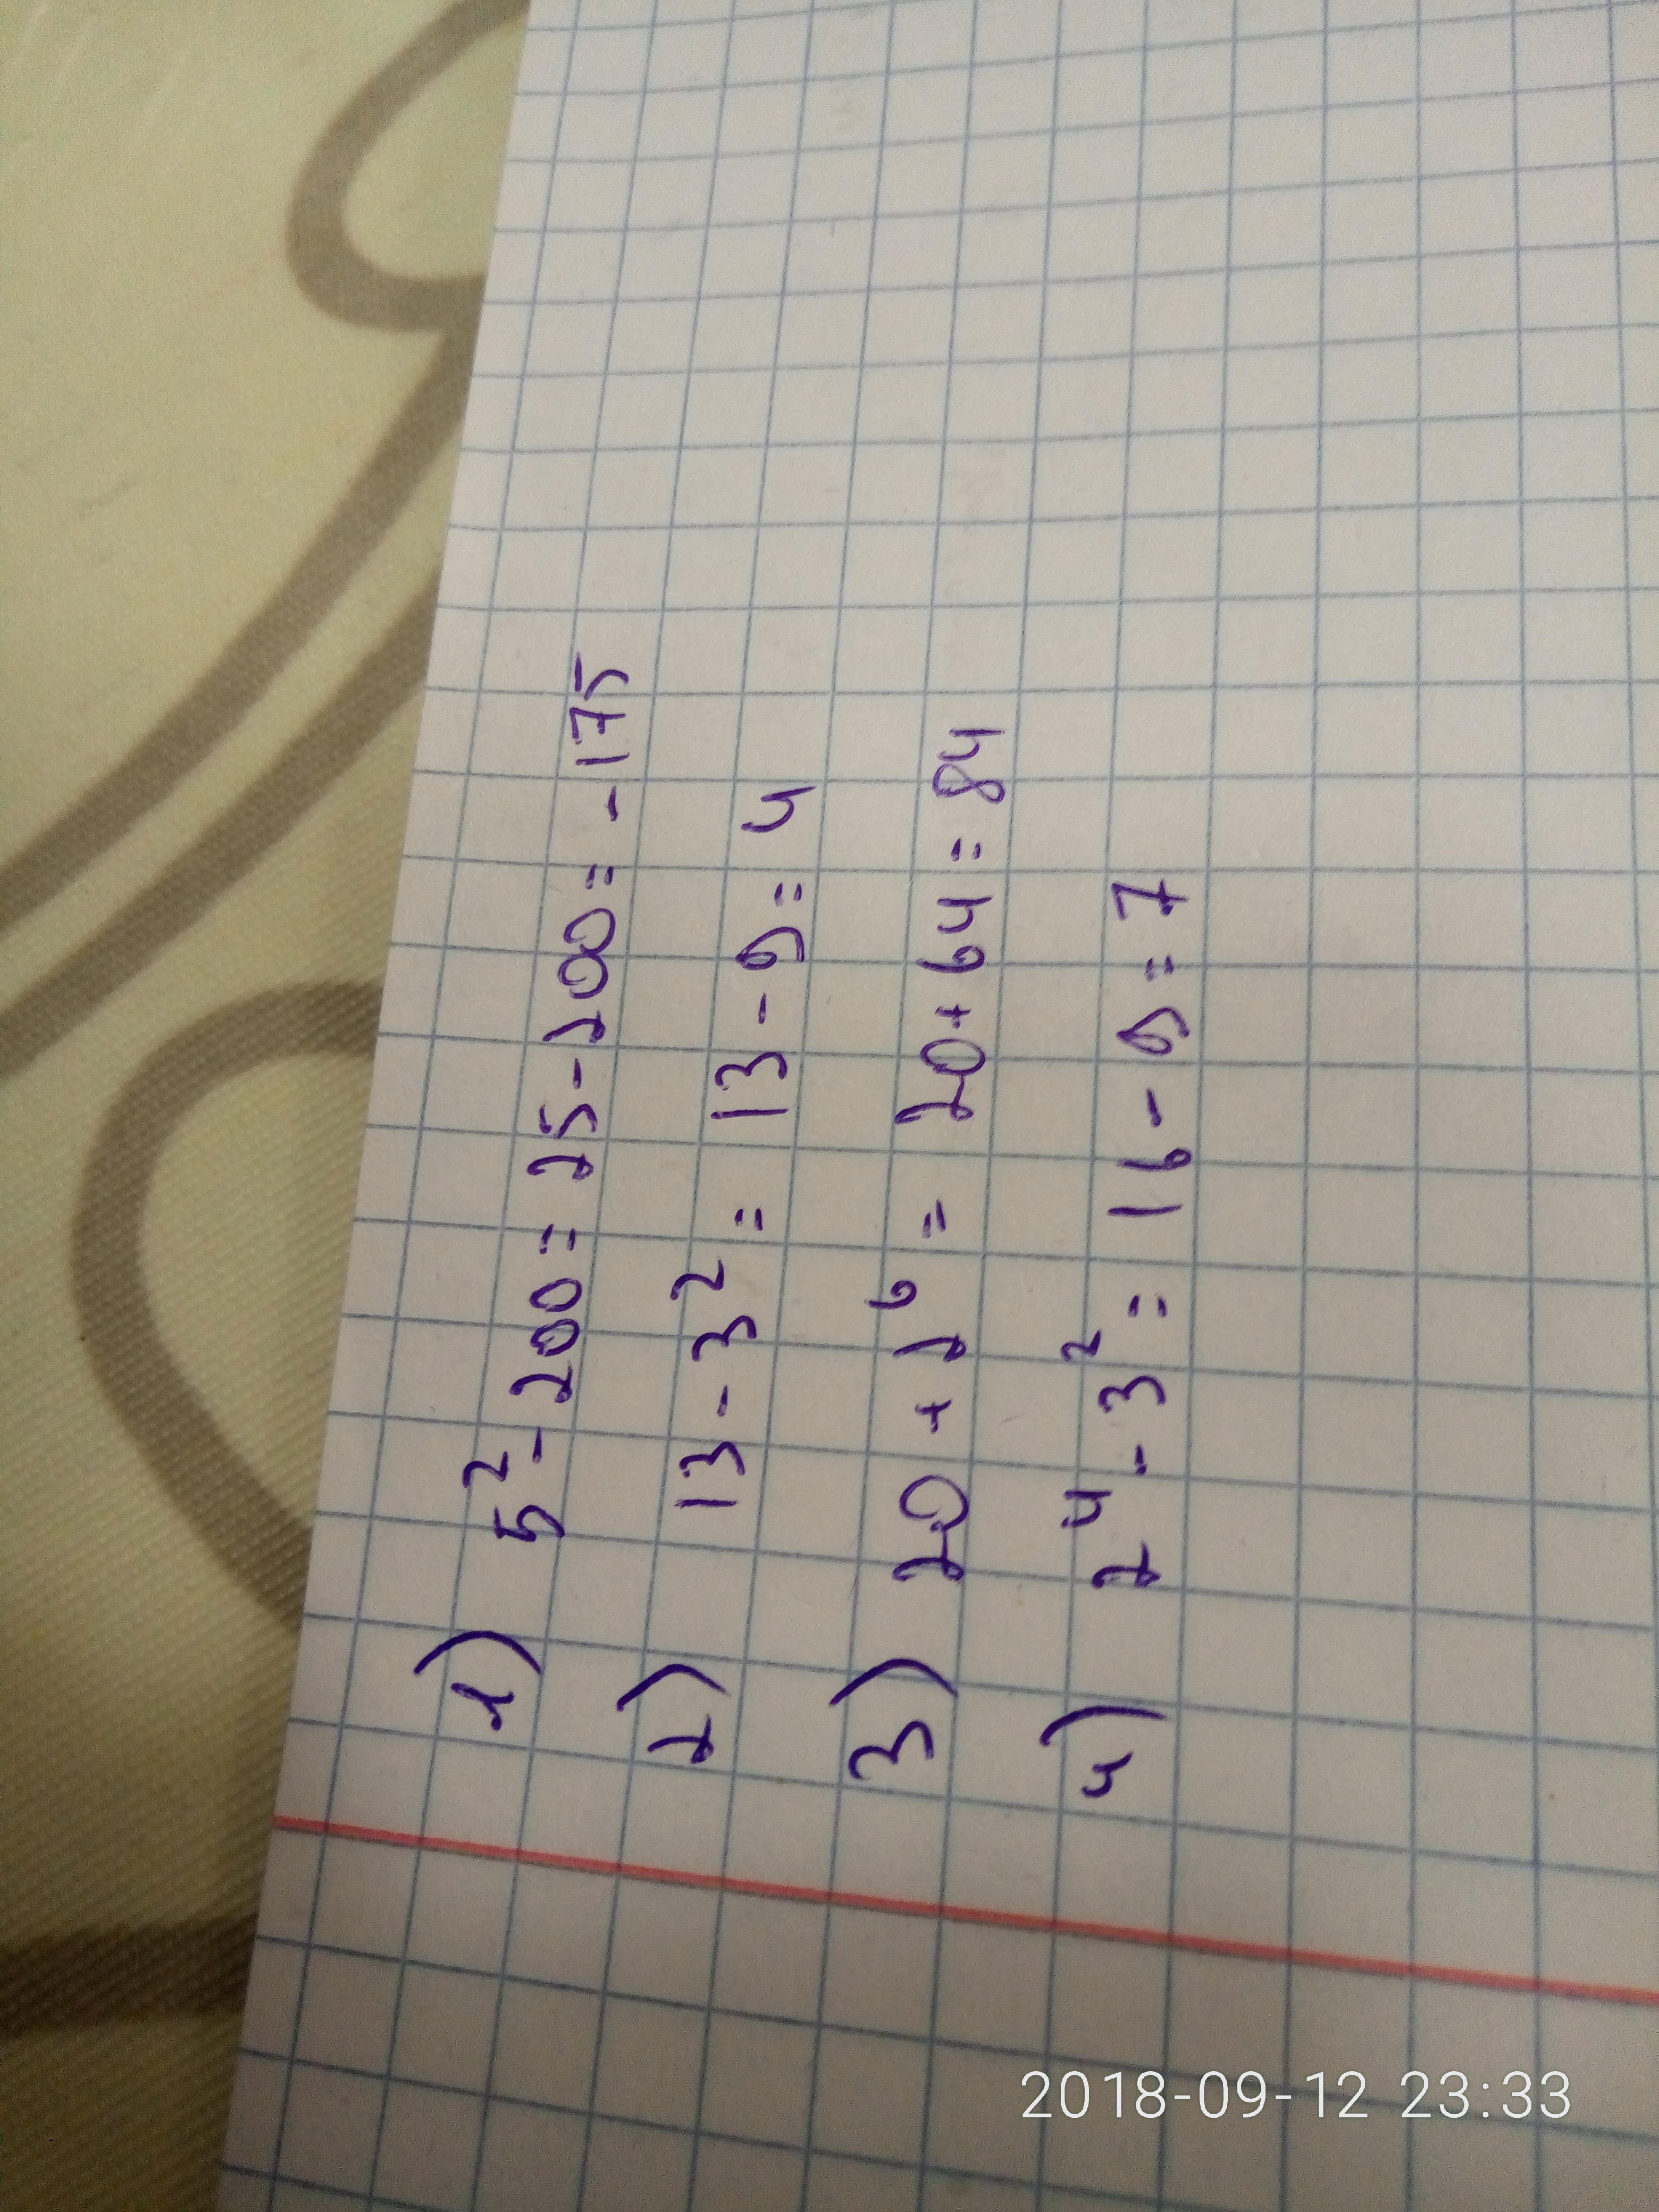 1) 5² - 200 = 25 - 200 = - 175
2) 13 - 3² = 13 - 9 = 4
3) 20 + 2⁶ = 20 + 64 = 84
4) 2⁴ - 3² = 16 - 9 = 7
2018-09-12 23:33